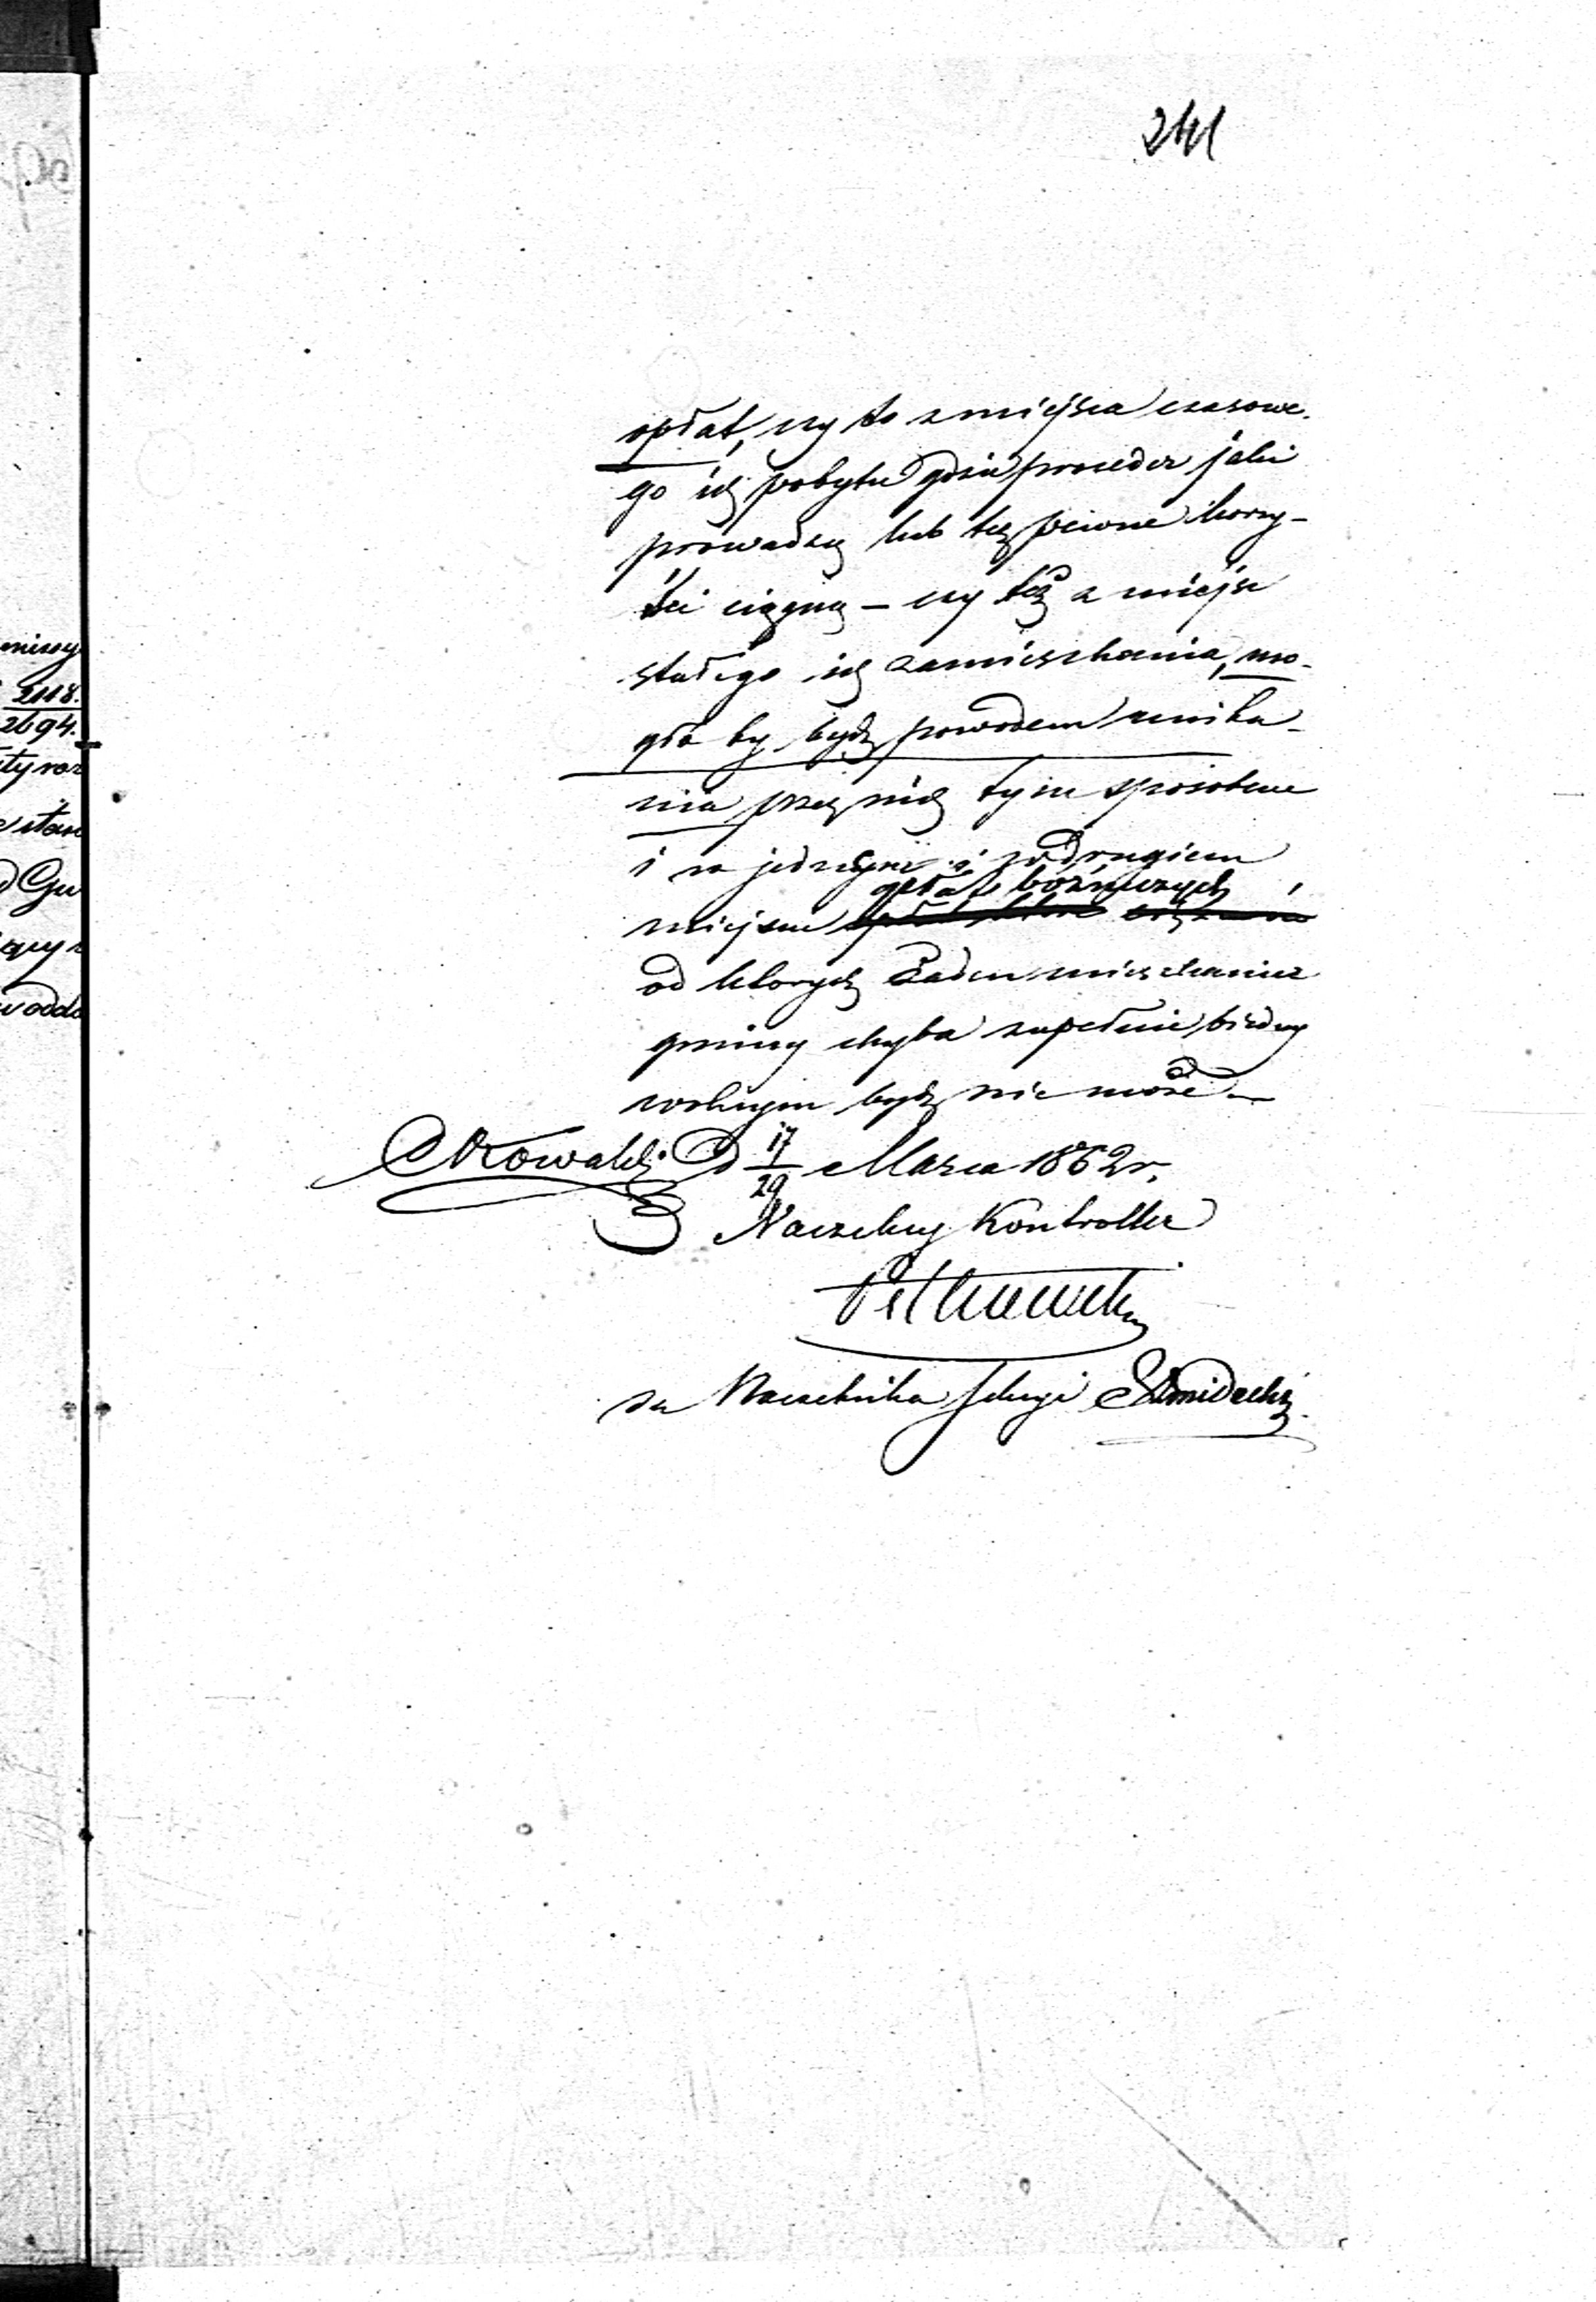 241
opłat, czy to z miejsca czasowe-
go ich pobytu gdzie proceder jaki
prowadzą lub też pewne korzy-
ści ciągną – czy też z miejsc
stałego ich zamieszkania, mo-
gła by bydź powodem unika-
nia przez nich tym sposobem
i w jednym i w drugiem
opłat bóżniczych
miejscu
od których żaden mieszkaniec
gminy chyba zupełnie biedny
wolnym bydź nie może –
d 17/29 Marca 1862 r.
Naczelny Kontroller
za Naczelnika Sekcyi
2118.
2694.